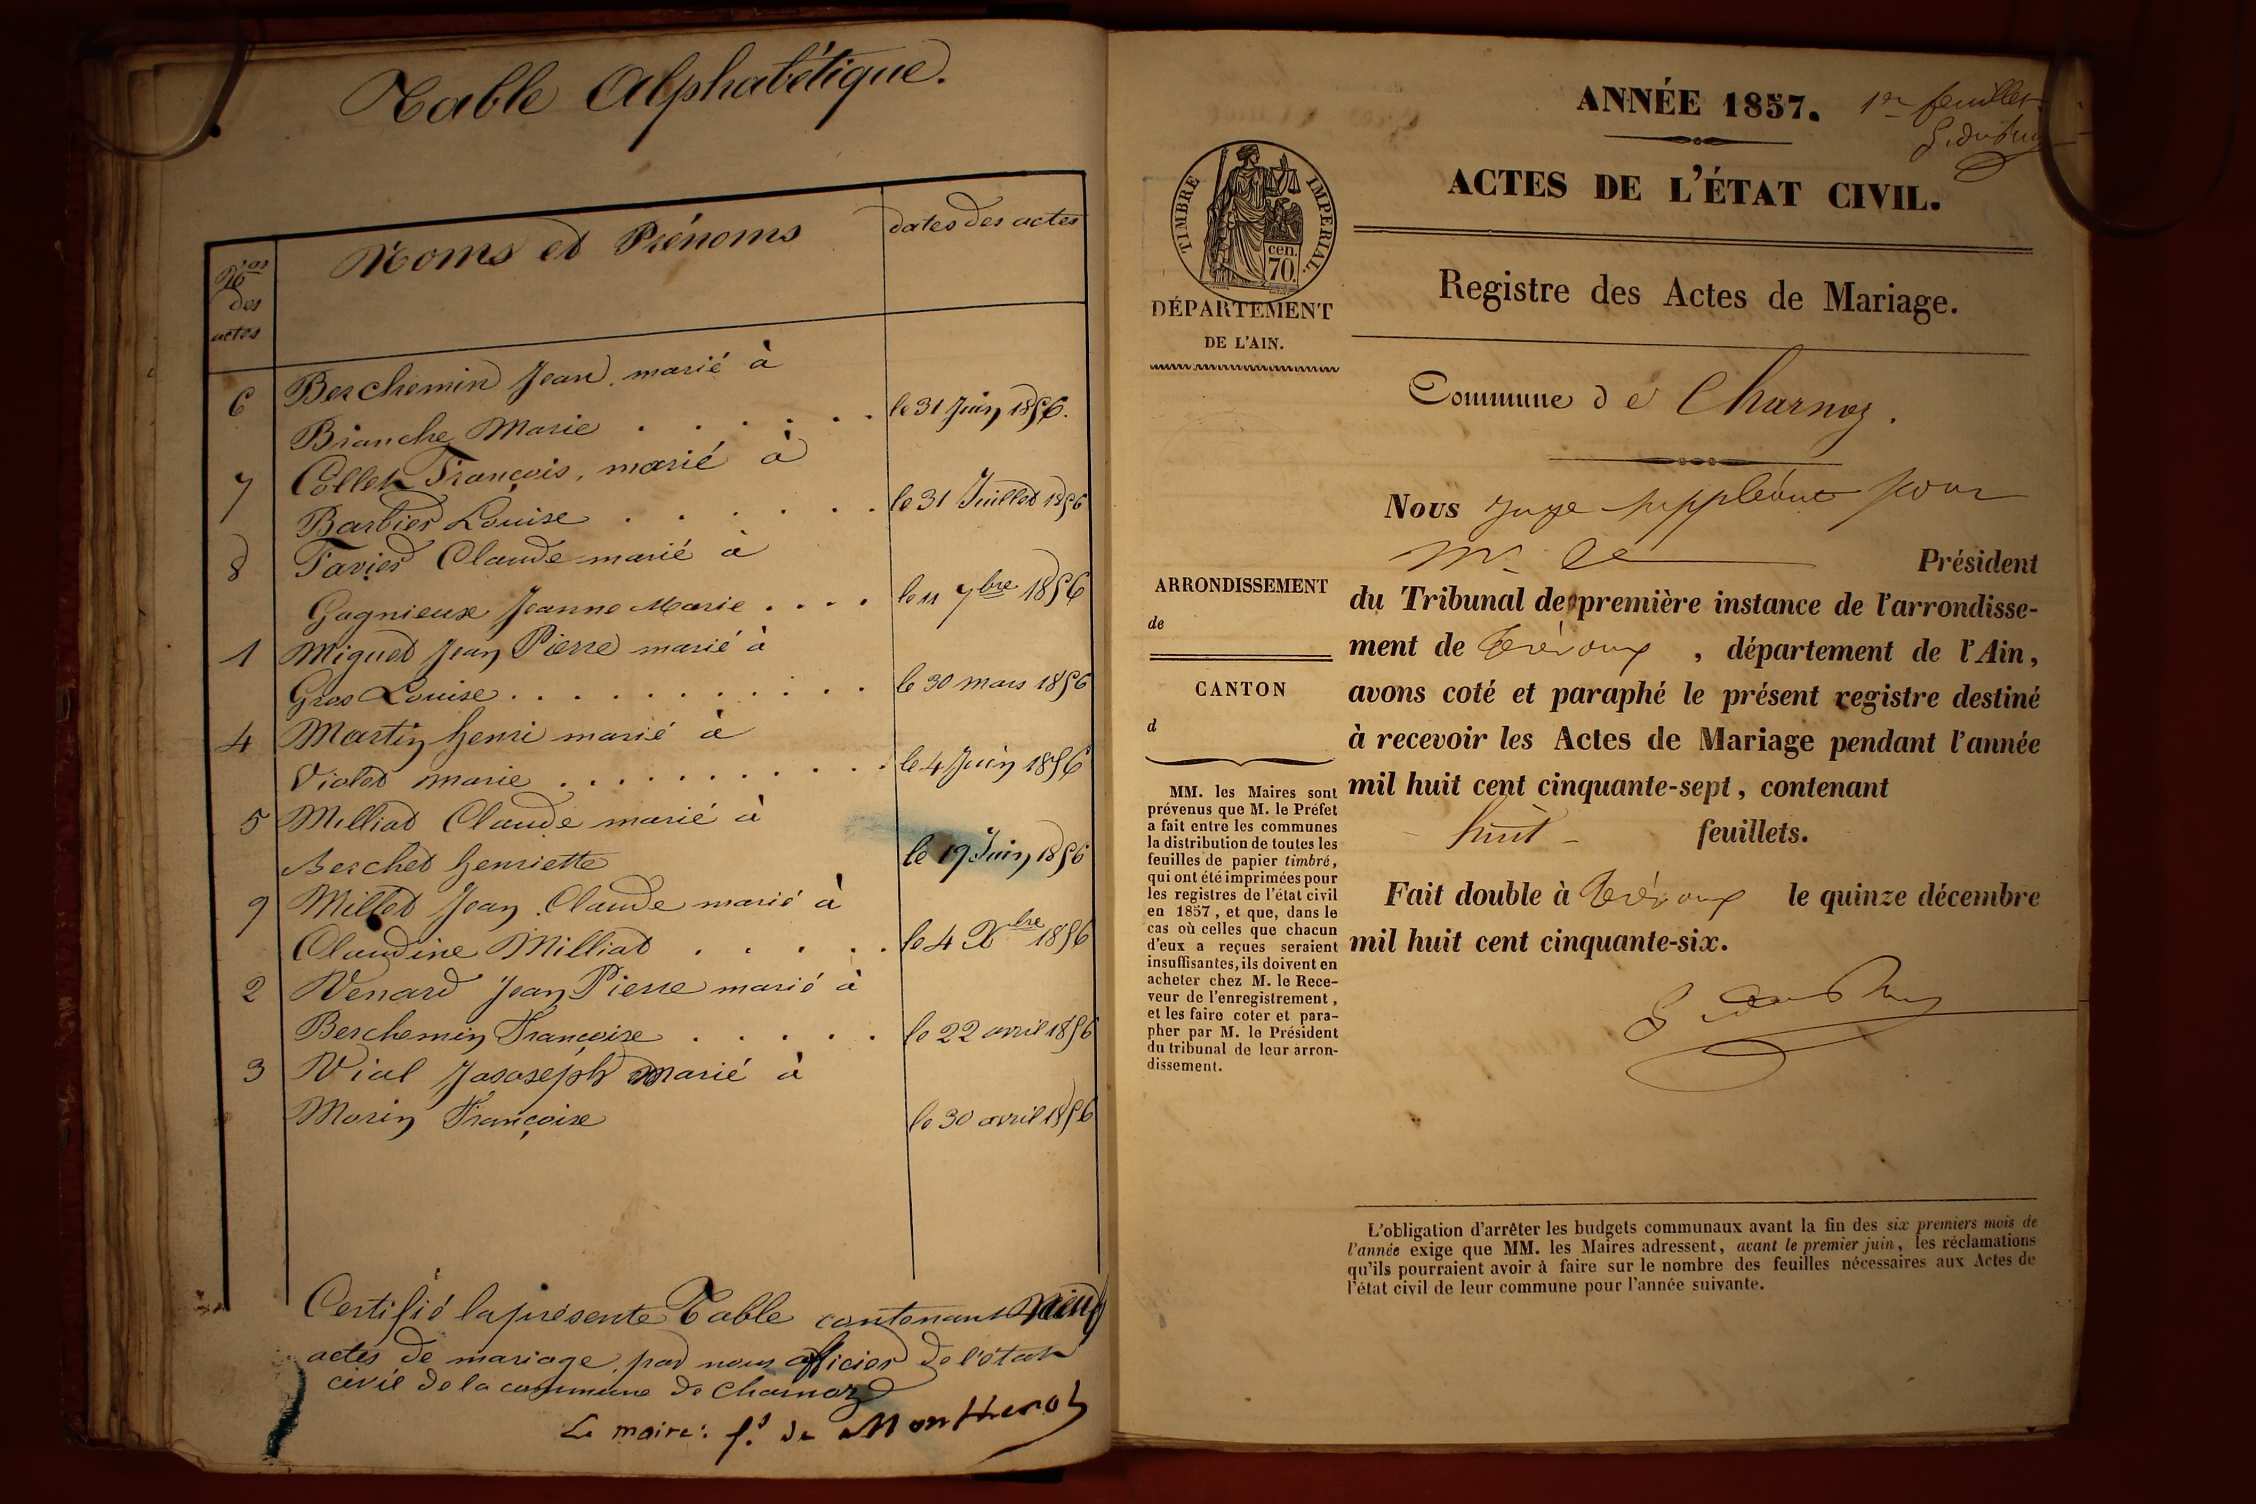 Table Alphabétique.
Nos des actes
Noms et Prénoms
dates des actes
6 Berchemin Jean, marié à
Branche Marie . . . . . . le 31 Juin 1856.
7 Collet François, marié à
Barbier Louise . . . . . . le 31 Juillet 1856
8 Favier Claude marié à
Gagnieux Jeanne Marie . . . . le 11 7bre 1856
1 Miguet Jean Pierre marié à
Gros Louise . . . . . . . . . . . le 30 mars 1856
4 Martin henri marié à
Violet marie . . . . . . . . . . le 4 Juin 1856
5 Milliat Claude marié à
Berchet henriette le 19 Juin 1856
9 Millet Jean Claude marié à
Claudine Milliat . . . . . le 4 Xbre 1856
2 Venard Jean Pierre marié à
Berchemin Françoise . . . . . le 22 avril 1856
3 Vial Jasoseph marié à
Morin Françoise le 30 avril 1856
Certifié la présente Table contenant neuf
actes de mariage, par nous officier de l'état
civil de la commune de Charnoz
Le maire: f.d de Montherot
ANNÉE 1857.
1er feuillet
ACTES DE L'ÉTAT CIVIL.
TIMBRE IMPERIAL.
cen.
70.
Registre des Actes de Mariage.
DÉPARTEMENT
DE L'AIN.
Commune de Charnoz.
Nous Juge suppléant pour
Mr le Président
du Tribunal de première instance de l'arrondisse-
ment de Trévoux, département de l'Ain,
avons coté et paraphé le présent registre destiné
à recevoir les Actes de Mariage pendant l'année
mil huit cent cinquante-sept, contenant
huit feuillets.
Fait double à Trévoux le quinze décembre
mil huit cent cinquante-six.
ARRONDISSEMENT
de
CANTON
d
MM. les Maires sont
prévenus que M. le Préfet
a fait entre les communes
la distribution de toutes les
feuilles de papier timbré,
qui ont été imprimées pour
les registres de l'état civil
en 1857, et que, dans le
cas où celles que chacun
d'eux a reçues seraient
insuffisantes, ils doivent en
acheter chez M. le Rece-
veur de l'enregistrement,
et les faire coter et para-
pher par M. le Président
du tribunal de leur arron-
dissement.
L'obligation d'arrêter les budgets communaux avant la fin des six premiers mois de
l'année exige que MM. les Maires adressent, avant le premier juin, les réclamations
qu'ils pourraient avoir à faire sur le nombre des feuilles nécessaires aux Actes de
l'état civil de leur commune pour l'année suivante.